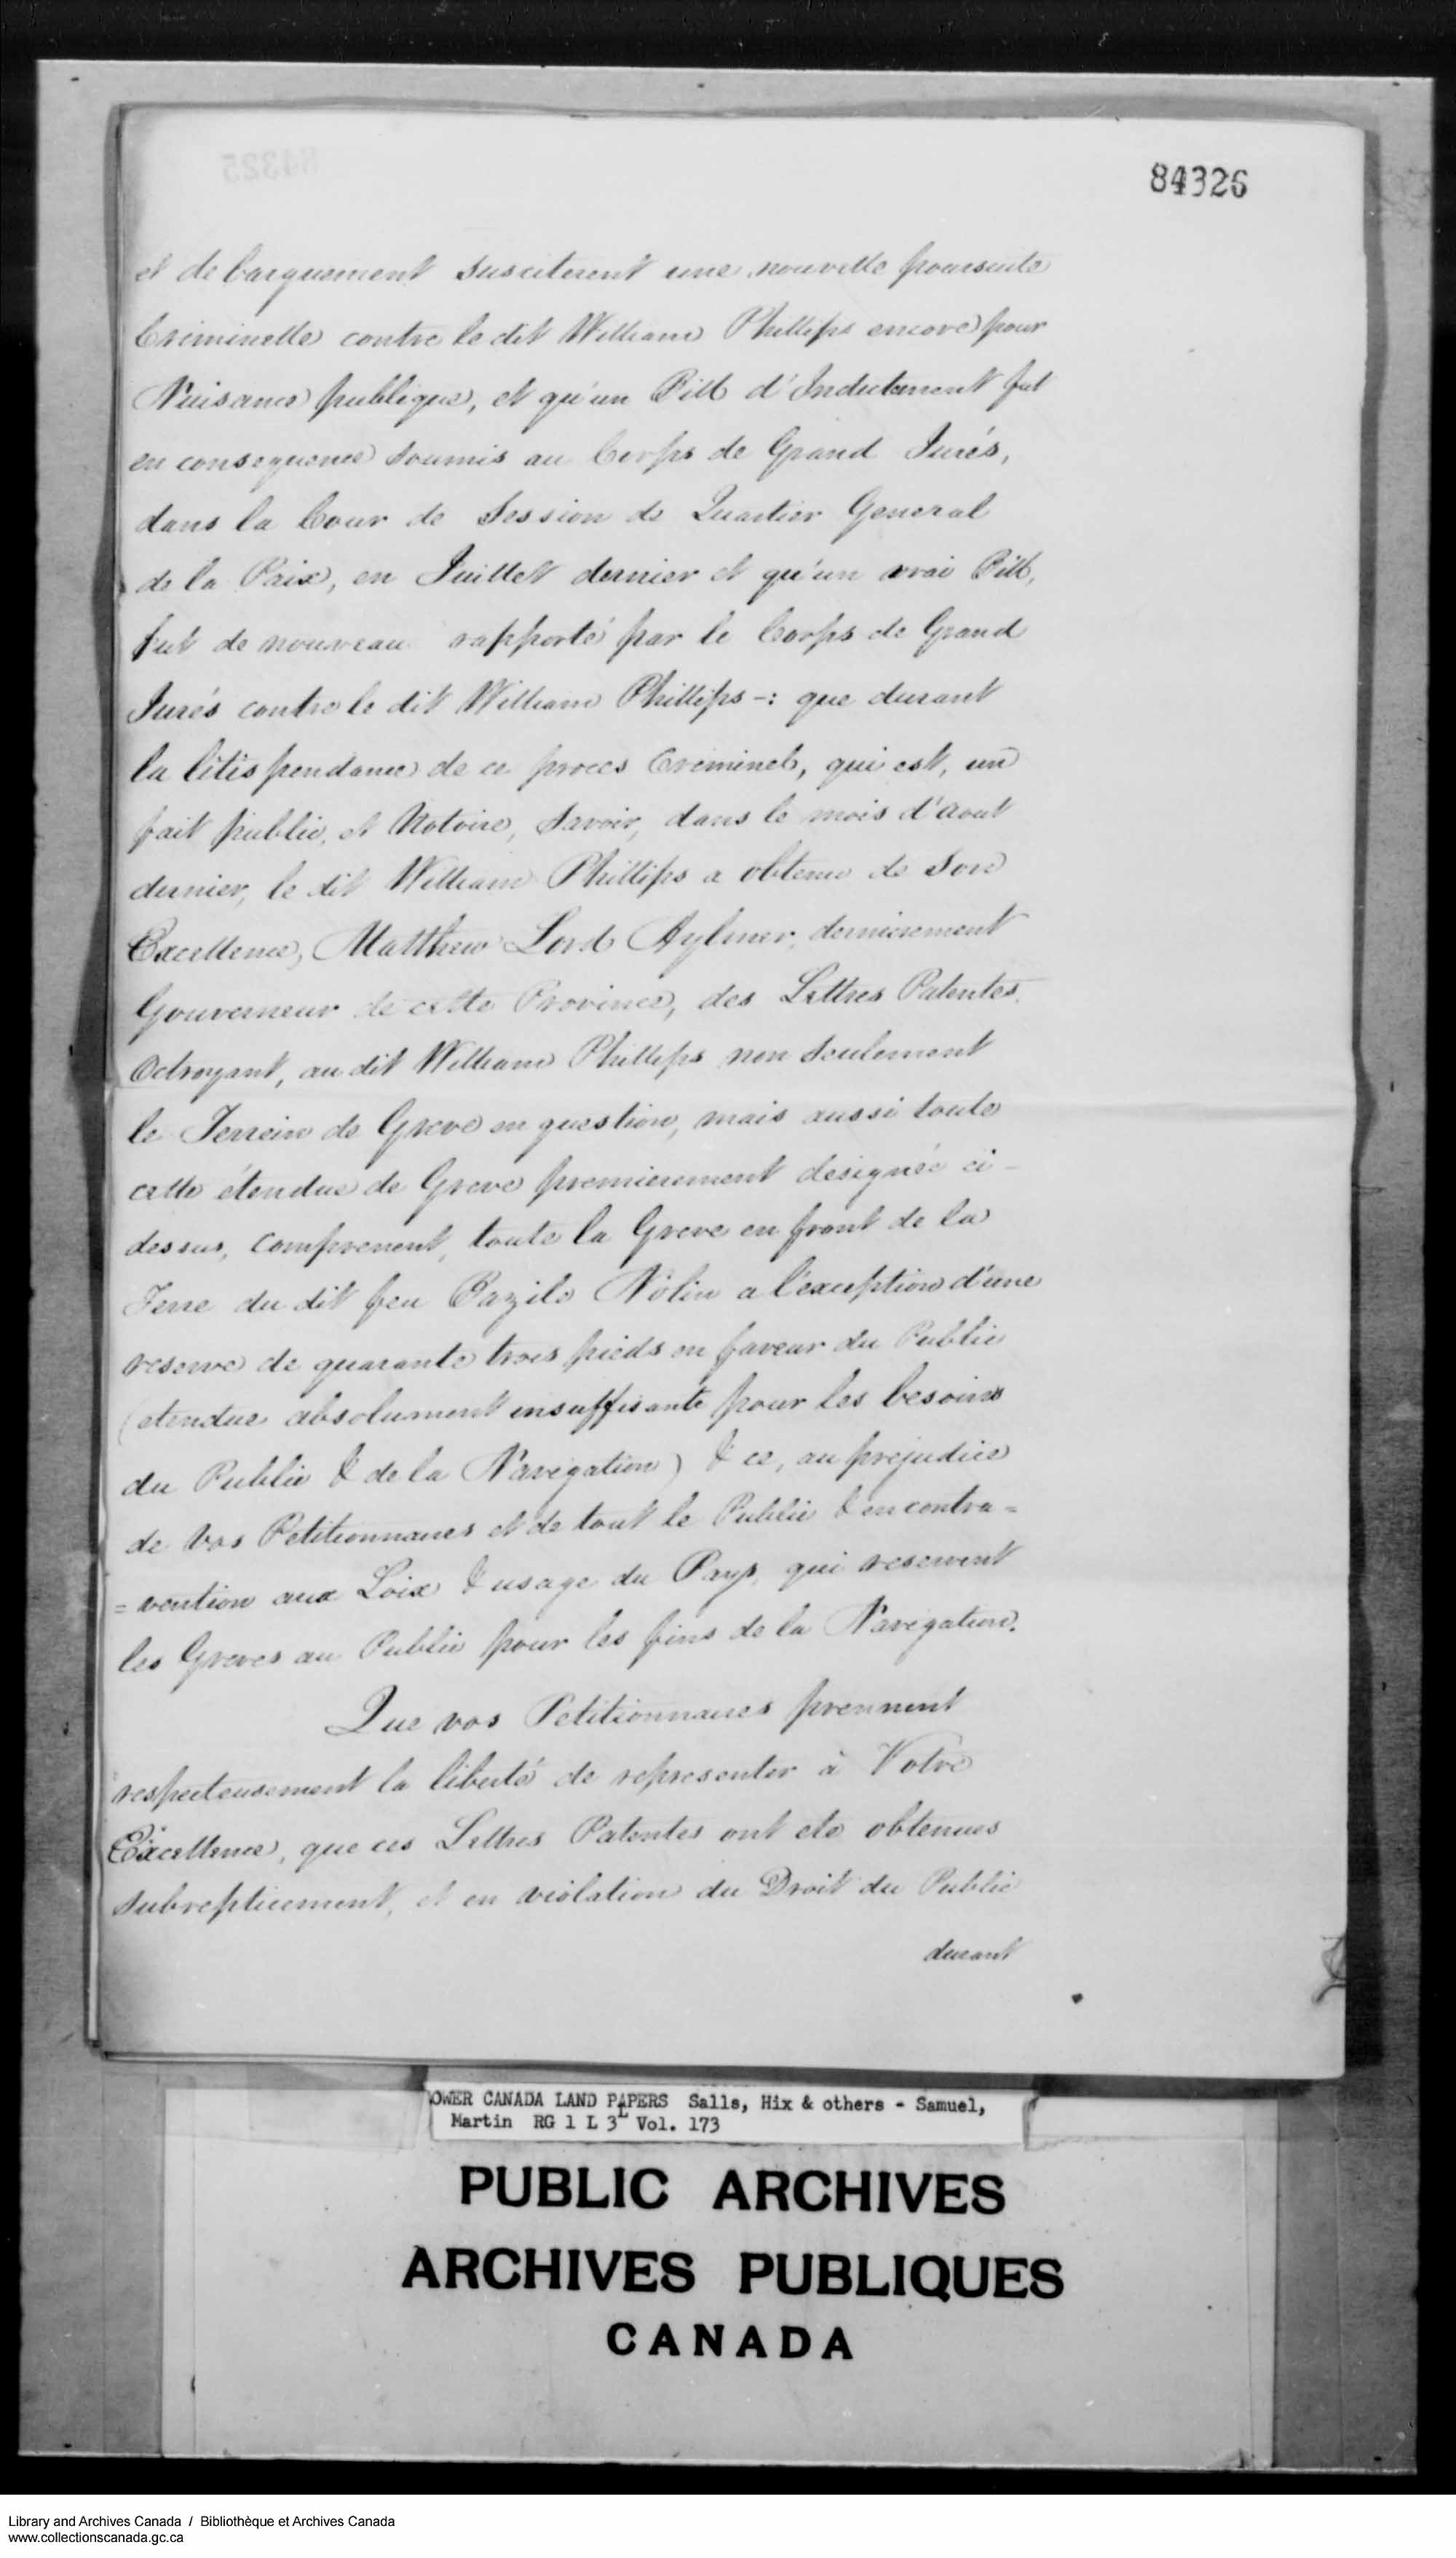 84325
84326
et debarquement susciterent une nouvelle poursuite
Criminelle contre le dit William Phillips encore pour
Nuisance publique, et qu'un Bill d'Indictement fut
en consequence soumis au Corps de Grand Jurés,
dans la Cour de Session de Quartier General
de la Paix, en Juillet dernier et qu'un vrai Bill,
fut de nouveau rapporté par le Corps de Grand
Jurés contre le dit William Phillips -: que durant
la litispendance de ce procès Criminel, qui est, un
fait public, et Notoire, Savoir, dans le mois d'aout
dernier, le dit William Phillips a obtenu de Son
Excellence, Matthew Lord Aylmer, dernierement
Gouverneur de cette Province, des Lettres Patentes
Octroyant, au dit William Phillips non seulement
le Terrein de Greve en question, mais aussi toute
cette étendue de Greve premierement designée ci-
dessus, comprenent, toute la Greve en front de la
Terre du dit feu Bazile Nolin a l'exception d'une
reserve de quarante trois pieds en faveur du Public
(etendue absolument insuffisante pour les besoins
du Public & de la Navigation) & ce, au prejudice
de Vos Petitionnaires et de tout le Public & en contra=
=vention aux Loix & usage du Pays, qui reservent
les Greves au Public pour les fins de la Navigation.
Que vos Petitionnaires prennent
respecteusement la liberté de representer à Votre
Excellence, que ces Lettres Patentes ont ete obtenues
subrepticement, et en violation du Droit du Public
durant
OWER CANADA LAND PAPERS Salls, Hix & others - Samuel,
Martin RG 1 L 3L Vol. 173
PUBLIC ARCHIVES
ARCHIVES PUBLIQUES
CANADA
Library and Archives Canada / Bibliothèque et Archives Canada
www.collectionscanada.gc.ca